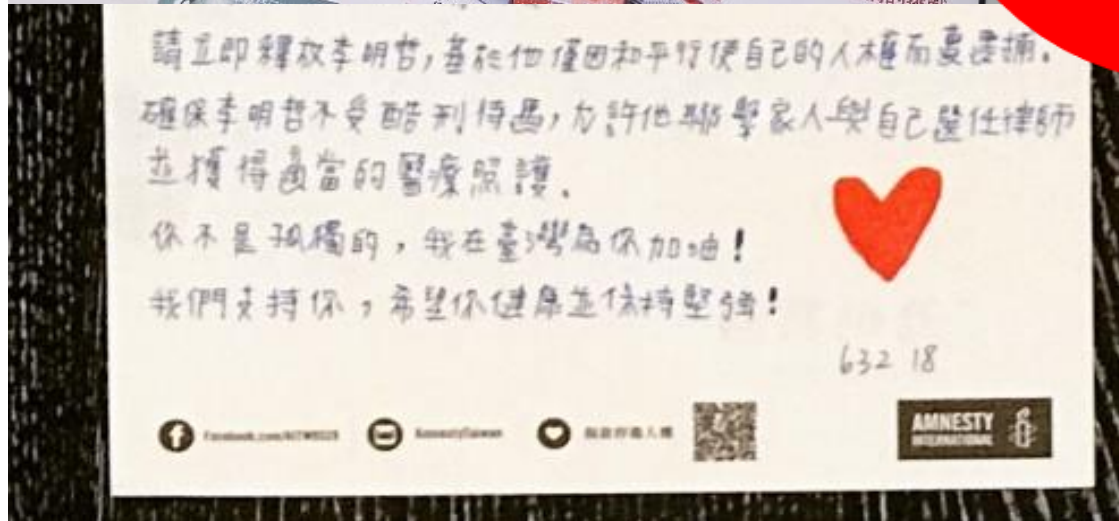 請立即釋放李明哲,基於他僅因和平行使自己的人權而受逮捕。
確保李明哲不受酷刑待遇,允許他聯繫家人與自己選任律師
並獲得適當的醫療照護、
你不是孤獨的,我在臺灣為你加油!
我們支持你,希望你健康並保持堅強!
632 18
AmnestyTaiwan
AMNESTY
INTERNATIONAL